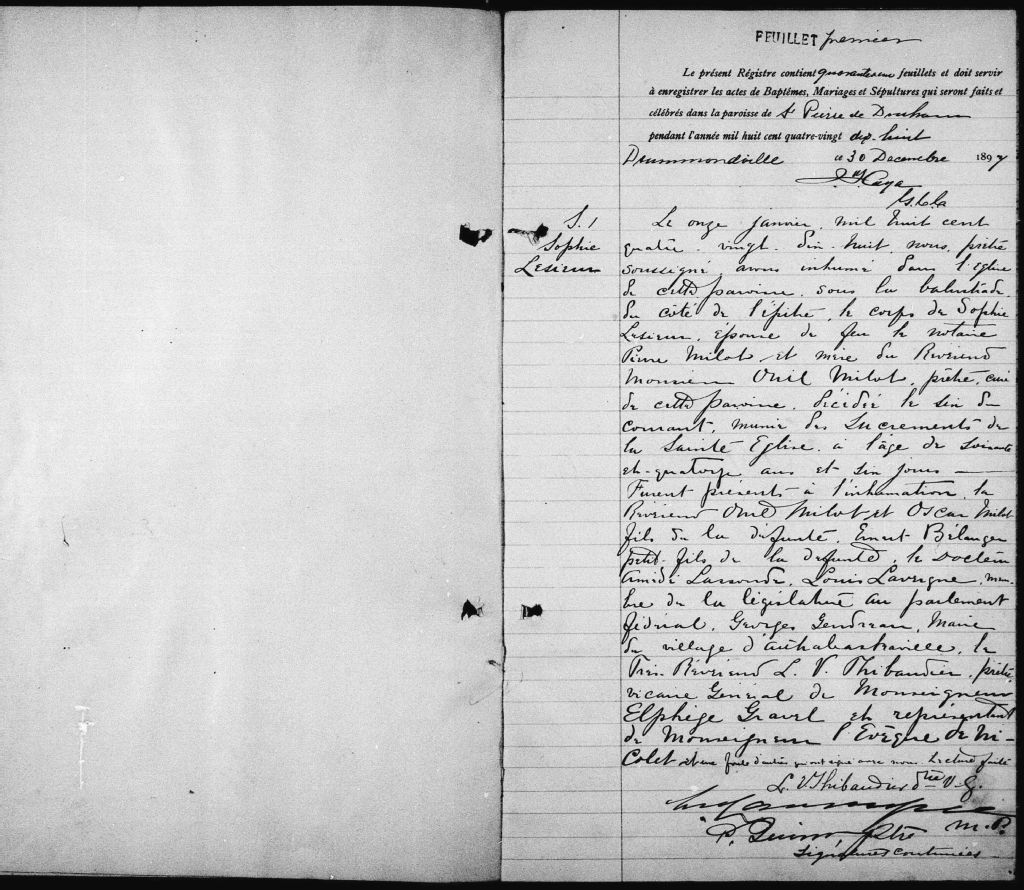 FEUILLET premier
Le présent Régistre contient quarante un feuillets et doit servir
à enregistrer les actes de Baptêmes, Mariages et Sépultures qui seront faits et
célébrés dans la paroisse de St Pierre de Durham
pendant l'année mil huit cent quatre-vingt dix-huit
Drummondville ce 30 Decembre 1897
Caya
S. 1
Sophie
Lesieur
Le onze janvier, mil huit cent
quatre-vingt-dix-huit, nous, prêtre
soussigné, avons inhumé dans l'Eglise
de cette paroisse, sous la balustrade,
du côté de l'épitre, le corps de Sophie
Lesieur, épouse de feu le notaire
Pierre Milot et mère du Révérend
Monsieur Onil Milot, prêtre, curé
de cette paroisse, décédée le six du
courant, munie des Sacrements de
la Sainte Eglise, à l'âge de soixante
et-quatorze ans et six jours
Furent présents à l'inhumation, le
Révérend Onil Milot et Oscar Milot
fils de la défunte, Ernest Bélanger
petit-fils de la defunte, le Docteur
Amédé Lassonde, Louis Lavergne, mem-
bre de la législature au parlement
fédéral, Georges Gendreau, Maire
du village d'Arthabaskaville, le
Très-Révérend L. V. Thibaudier, prêtre,
vicaire Général de Monseigneur
Elphège Gravel et représentant
de Monseigneur l'Evêque de Ni-
colet et une foule d'autres qui ont signé avec nous. Lecture faite
L. V. Thibaudier Ptre V. G.
M. P.
P. Quinn, Ptre
Signatures continuées